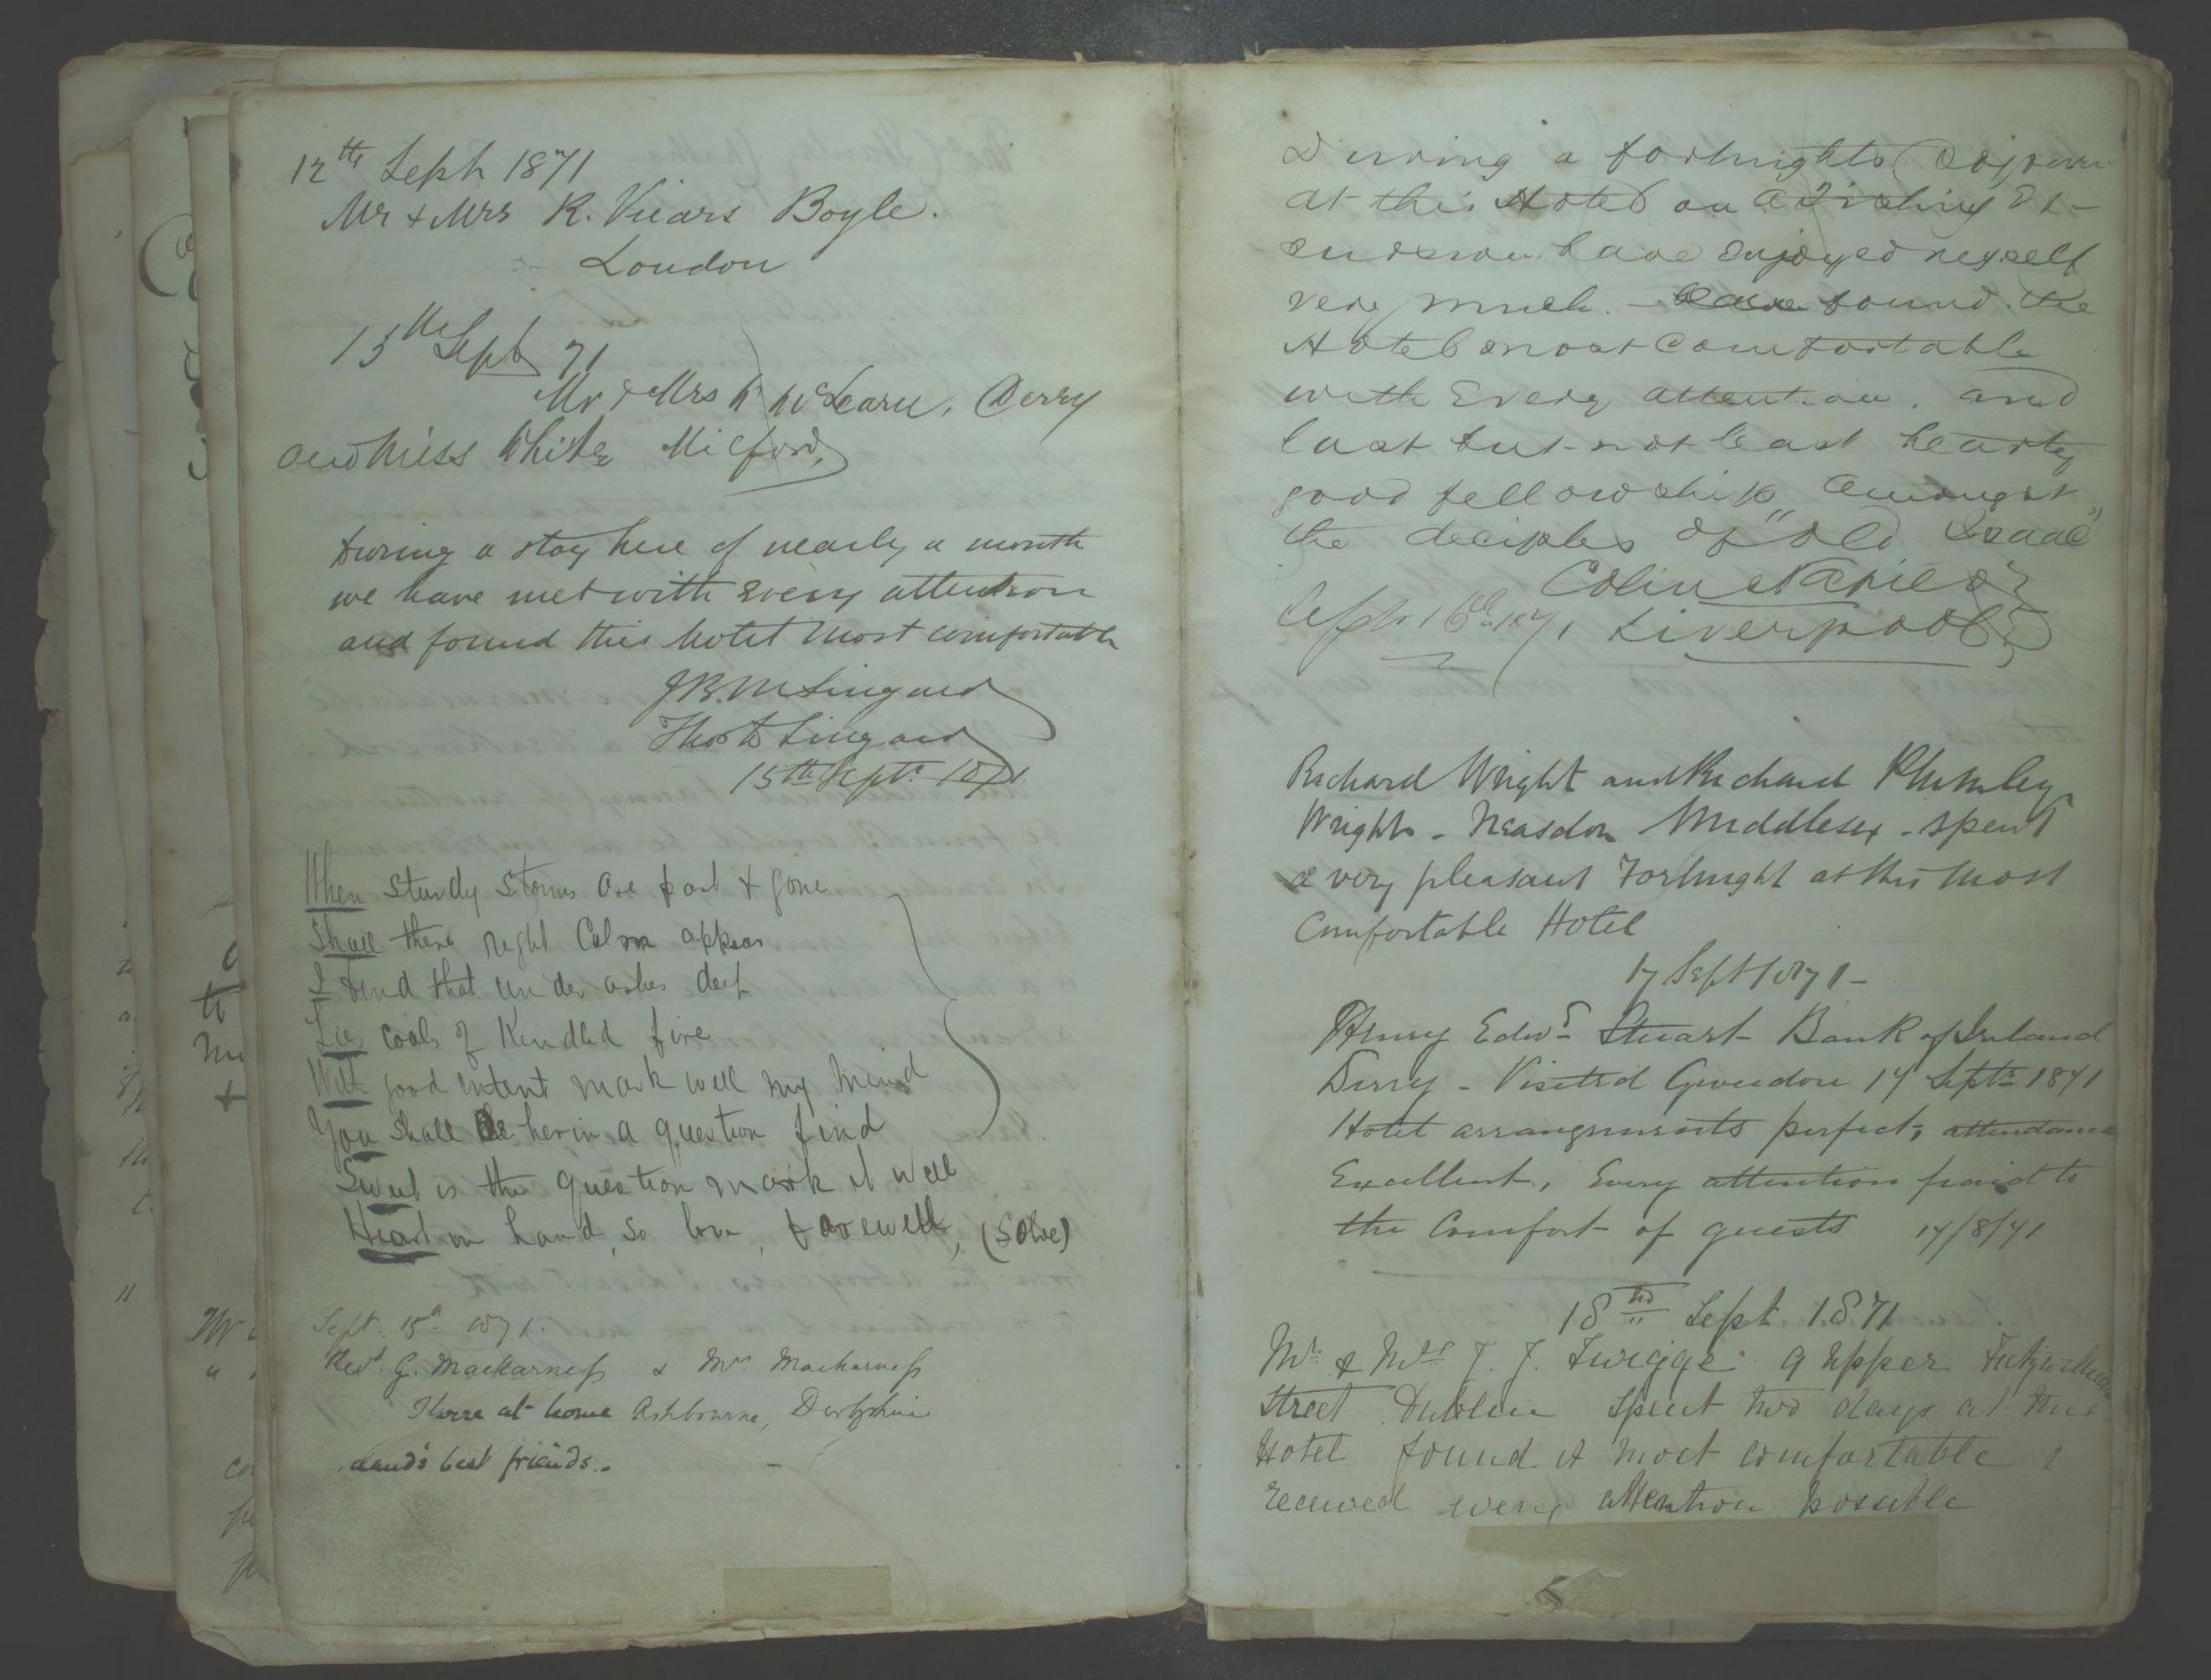 12th Sept 1871
Mr & Mrs R. Vicars Boyle.
London
13th Sept 71
Mr & Mrs McLearn, Derry
and Miss White Milford,
During a stay here of nearly a month
we have met with every attention
and found this hotel most comfortable
J.R.M. Lingard
Thos D Lingard
15th Septr 1871
When sturdy storms are past & gone
Shall there right Calm appear
I find that under ashes deep
Lies coals of Kendled fire
With good entent mark well my mind
You shall herin a question find
Sweet is the question mark it well
Heart in hand, so love, farewell, (Solve)
Sept. 15th 1871.
Revd G. Mackarness & Mrs Mackarness
at home Ashbourne, Derbyshire
best friends.
During a fortnights Sojourn
at this Hotel on a Fishing Ex-
cursion have enjoyed myself
very much. - have found the
Hotel most Comfortable
with Every attention, and
last but not least hearty
good fellowship amongst
the deciples of "old Izaac"
Colin Napier
Septr 16th 1871 Liverpool
Richard Wright and Richard Plumley
Wright - Neasdon Middlesex - spent
a very pleasant Fortnight at this most
Comfortable Hotel
17 Sept 1871 -
Henry Edwd Stuart - Bank of Ireland
Derry - Visited Gweedore 17 Septr 1871
Hotel arrangements perfect, attendance
Excellent, Every attention paid to
the Comfort of guests 17/8/71
18th Sept 1871
Mr & Mrs J. J. Twigge 9 Upper Fitzwilliam
Street Dublin spent two days at this
Hotel found it most comfortable &
received every attention possible